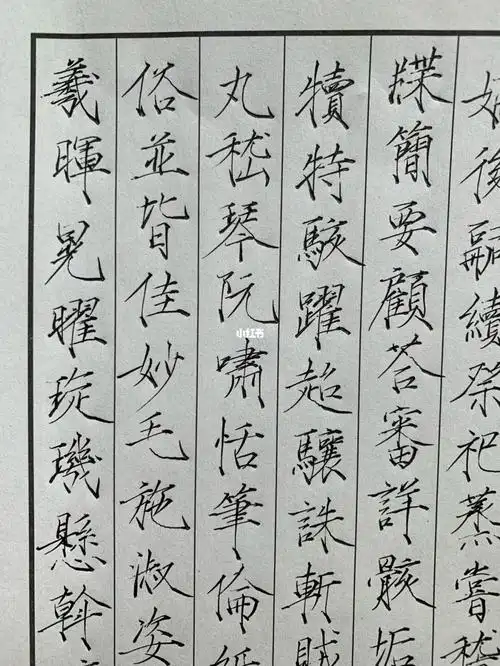 後嗣續祭祀蒸嘗稽
牒簡要顧荅審詳骸垢
犢特駭躍超驤誅斬賊
丸嵇琴阮嘯恬筆倫紙
俗並皆佳妙毛施淑姿
羲暉晃曜琁璣懸斡
小红书